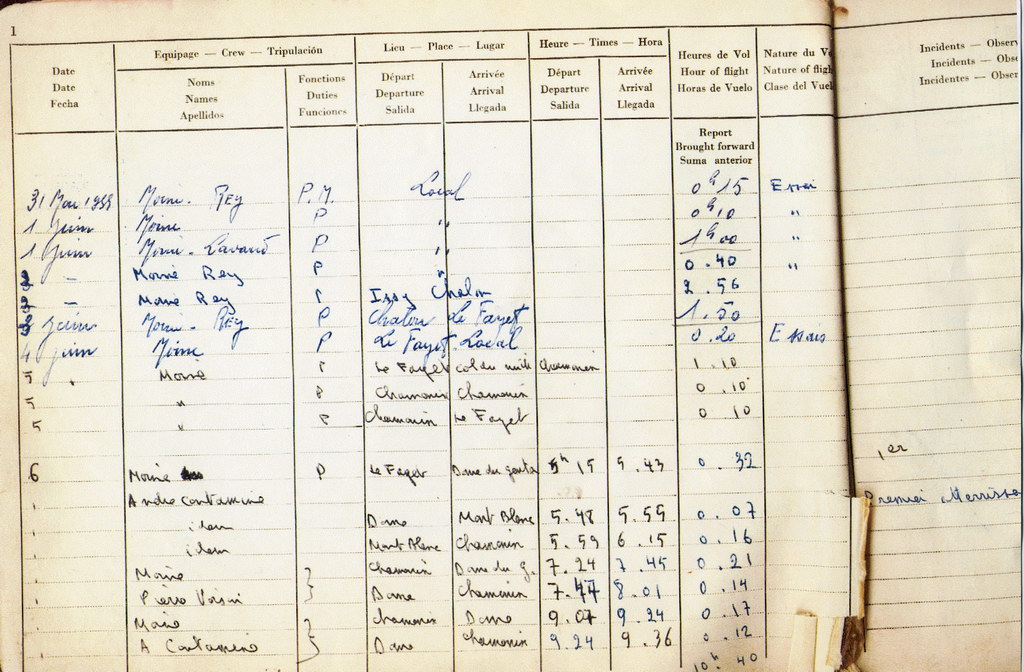 1
Date
Date
Fecha
Equipage — Crew — Tripulación
Noms
Names
Apellidos
Fonctions
Duties
Funciones
Lieu — Place — Lugar
Départ
Departure
Salida
Arrivée
Arrival
Llegada
Heure — Times — Hora
Départ
Departure
Salida
Arrivée
Arrival
Llegada
Heures de Vol
Hour of flight
Horas de Vuelo
Nature du Vo
Nature of fligh
Clase del Vuel
Incidents — Observ
Incidents — Obse
Incidentes — Obser
Report
Brought forward
Suma anterior
31 Mai Moine - Rey P.M. Local 0h15 Essai
1 Juin Moine P " 0h10 "
1 Juin Moine - P " 1h00 "
Moine Rey P " 0.40 "
Moine Rey P Issy Chalon 2.56
3 Juin Moine - Rey P Chalon Le Fayet 1.50
4 Juin Moine P Le Fayet - Local 0.20 Essais
5 " Moine P Le Fayet col du Chamonix 1.10
5 " P Chamonix Chamonix 0.10
5 " P Chamonix Le Fayet 0 10
6 Moine P Le Fayet Dome du gouter 5h15 5.43 0.32
1er
Andre Contamine
Premier
idem Dome Mont Blanc 5.48 5.55 0.07
idem Mont Blanc Chamonix 5.59 6.15 0.16
Moine Chamonix Dome du G. 7.24 7.45 0.21
Pierre Dome Chamonix 7.47 8.01 0.14
Moine Chamonix Dome 9.07 9.24 0.17
A Contamine Dome Chamonix 9.24 9.36 0.12
10h 40